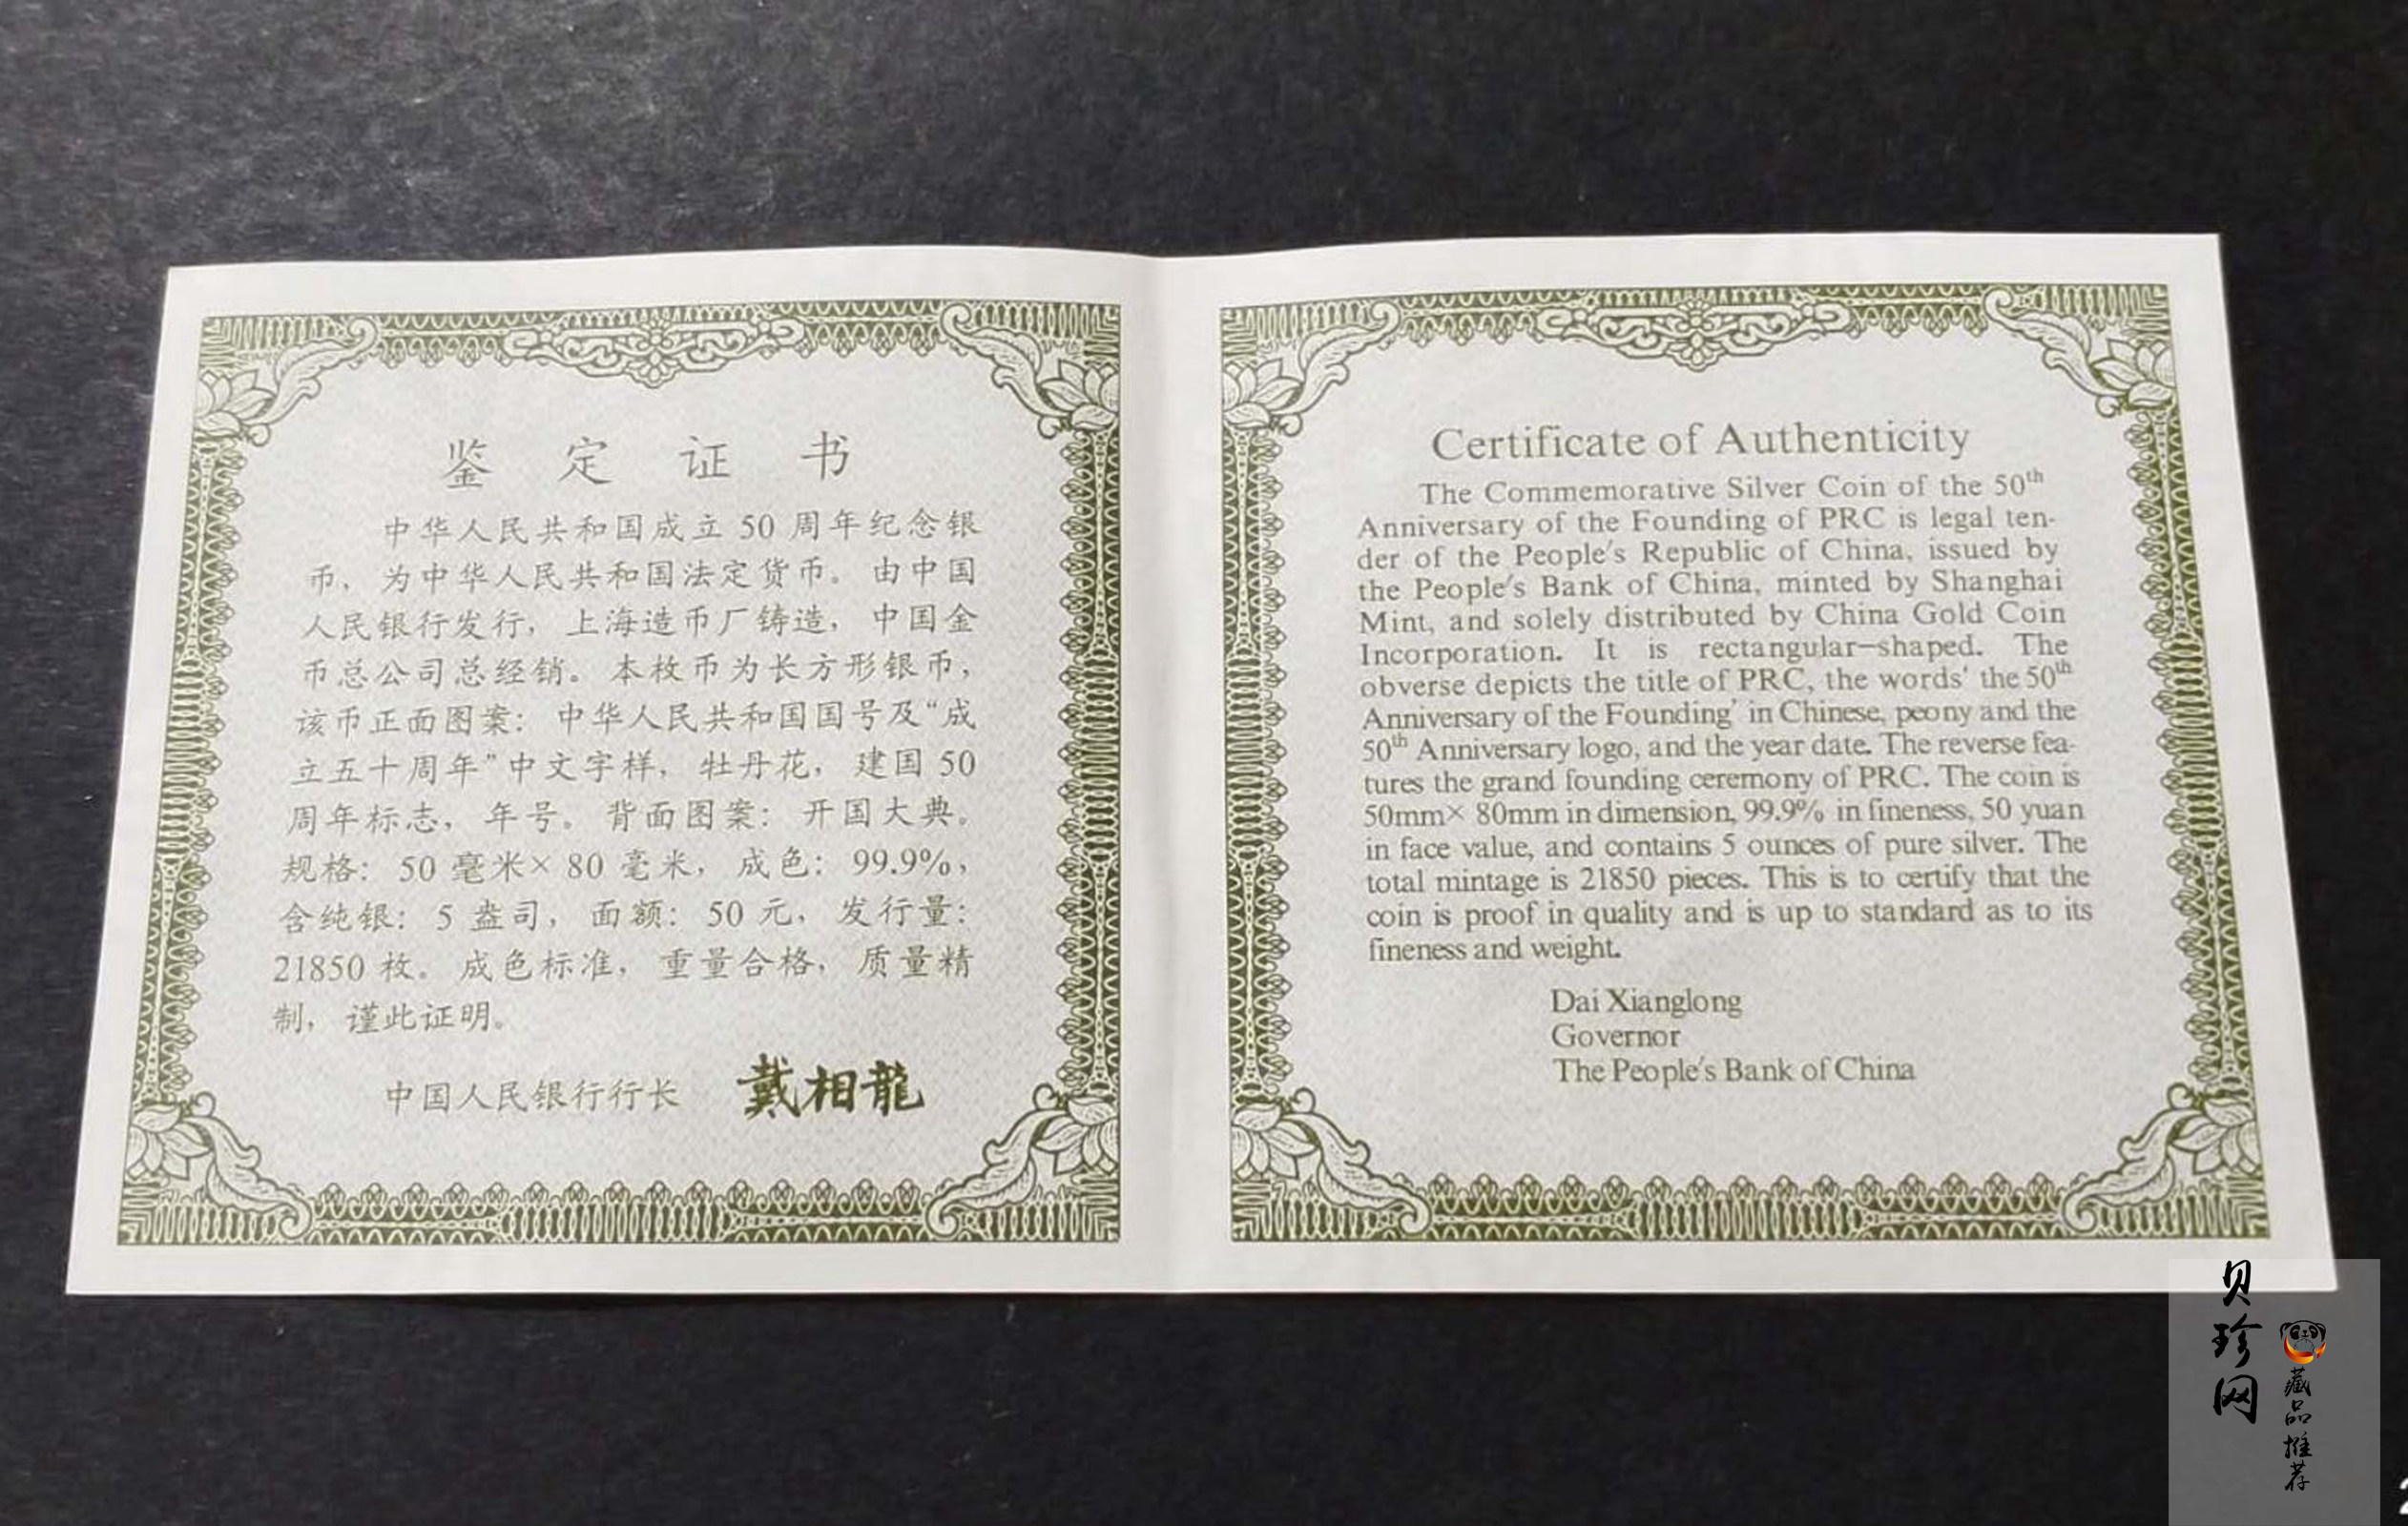 鉴定证书
中华人民共和国成立 50 周年纪念银
币，为中华人民共和国法定货币。由中国
人民银行发行，上海造币厂铸造，中国金
币总公司总经销。本枚币为长方形银币，
该币正面图案：中华人民共和国国号及“成
立五十周年”中文字样，牡丹花，建国 50
周年标志，年号。背面图案：开国大典。
规格：50 毫米× 80 毫米，成色：99.9%，
含纯银：5 盎司，面额：50 元，发行量：
21850 枚。成色标准，重量合格，质量精
制，谨此证明。
中国人民银行行长 戴相龍
Certificate of Authenticity
The Commemorative Silver Coin of the 50th
Anniversary of the Founding of PRC is legal ten-
der of the People's Republic of China, issued by
the People's Bank of China, minted by Shanghai
Mint, and solely distributed by China Gold Coin
Incorporation. It is rectangular-shaped. The
obverse depicts the title of PRC, the words' the 50th
Anniversary of the Founding' in Chinese, peony and the
50th Anniversary logo, and the year date. The reverse fea-
tures the grand founding ceremony of PRC. The coin is
50mm× 80mm in dimension, 99.9% in fineness, 50 yuan
in face value, and contains 5 ounces of pure silver. The
total mintage is 21850 pieces. This is to certify that the
coin is proof in quality and is up to standard as to its
fineness and weight.
Dai Xianglong
Governor
The People's Bank of China
贝珍网
藏品推荐